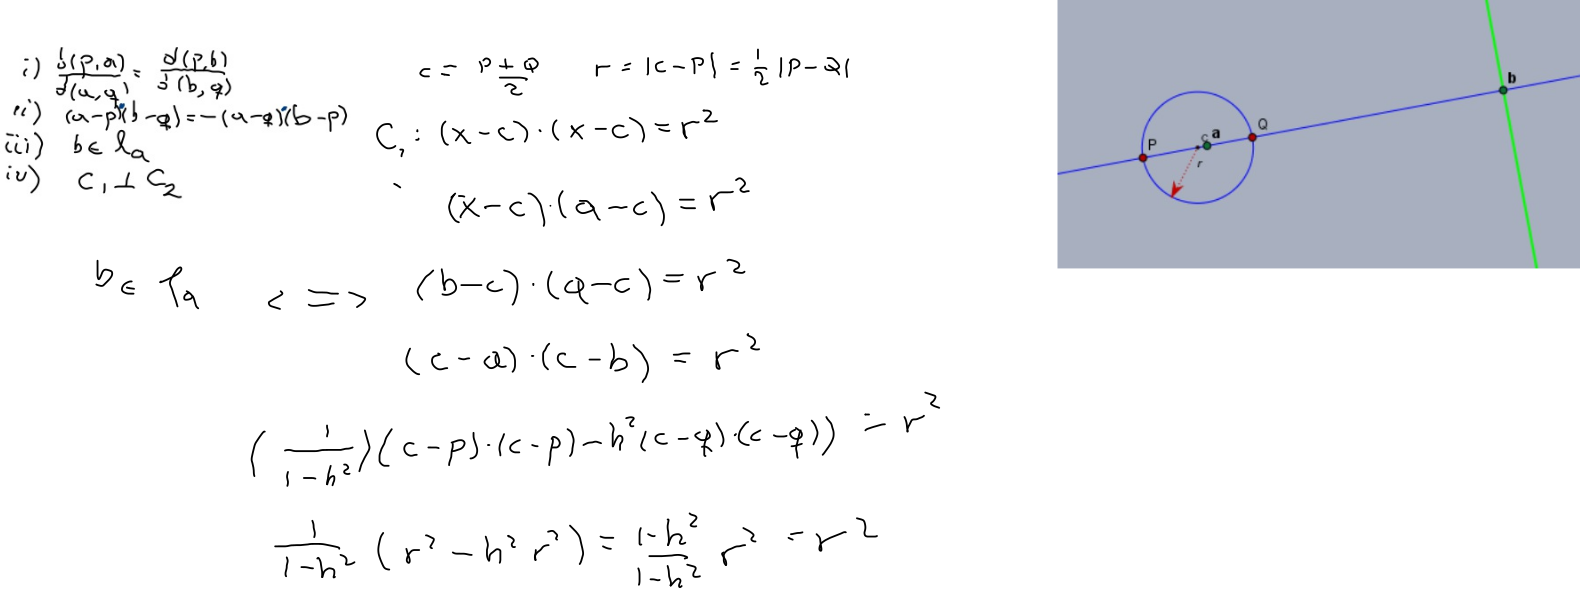 i) d(p,a)/d(a,q) = d(p,b)/d(b,q)
ii) (a-p)·(b-q)=-(a-q)·(b-p)
iii) b∈ l_a
iv) C₁ ⊥ C₂
c = (P+Q)/2   r = |c-P| = 1/2 |P-Q|
C₁: (x-c)·(x-c)=r²
(x-c)·(a-c)=r²
b∈ l_a <=> (b-c)·(a-c)=r²
(c-a)·(c-b) = r²
(1/(1-h²))((c-p)·(c-p)-h²(c-q)·(c-q)) = r²
1/(1-h²) (r² - h² r²) = (1-h²)/(1-h²) r² = r²
P
c
a
Q
r
b